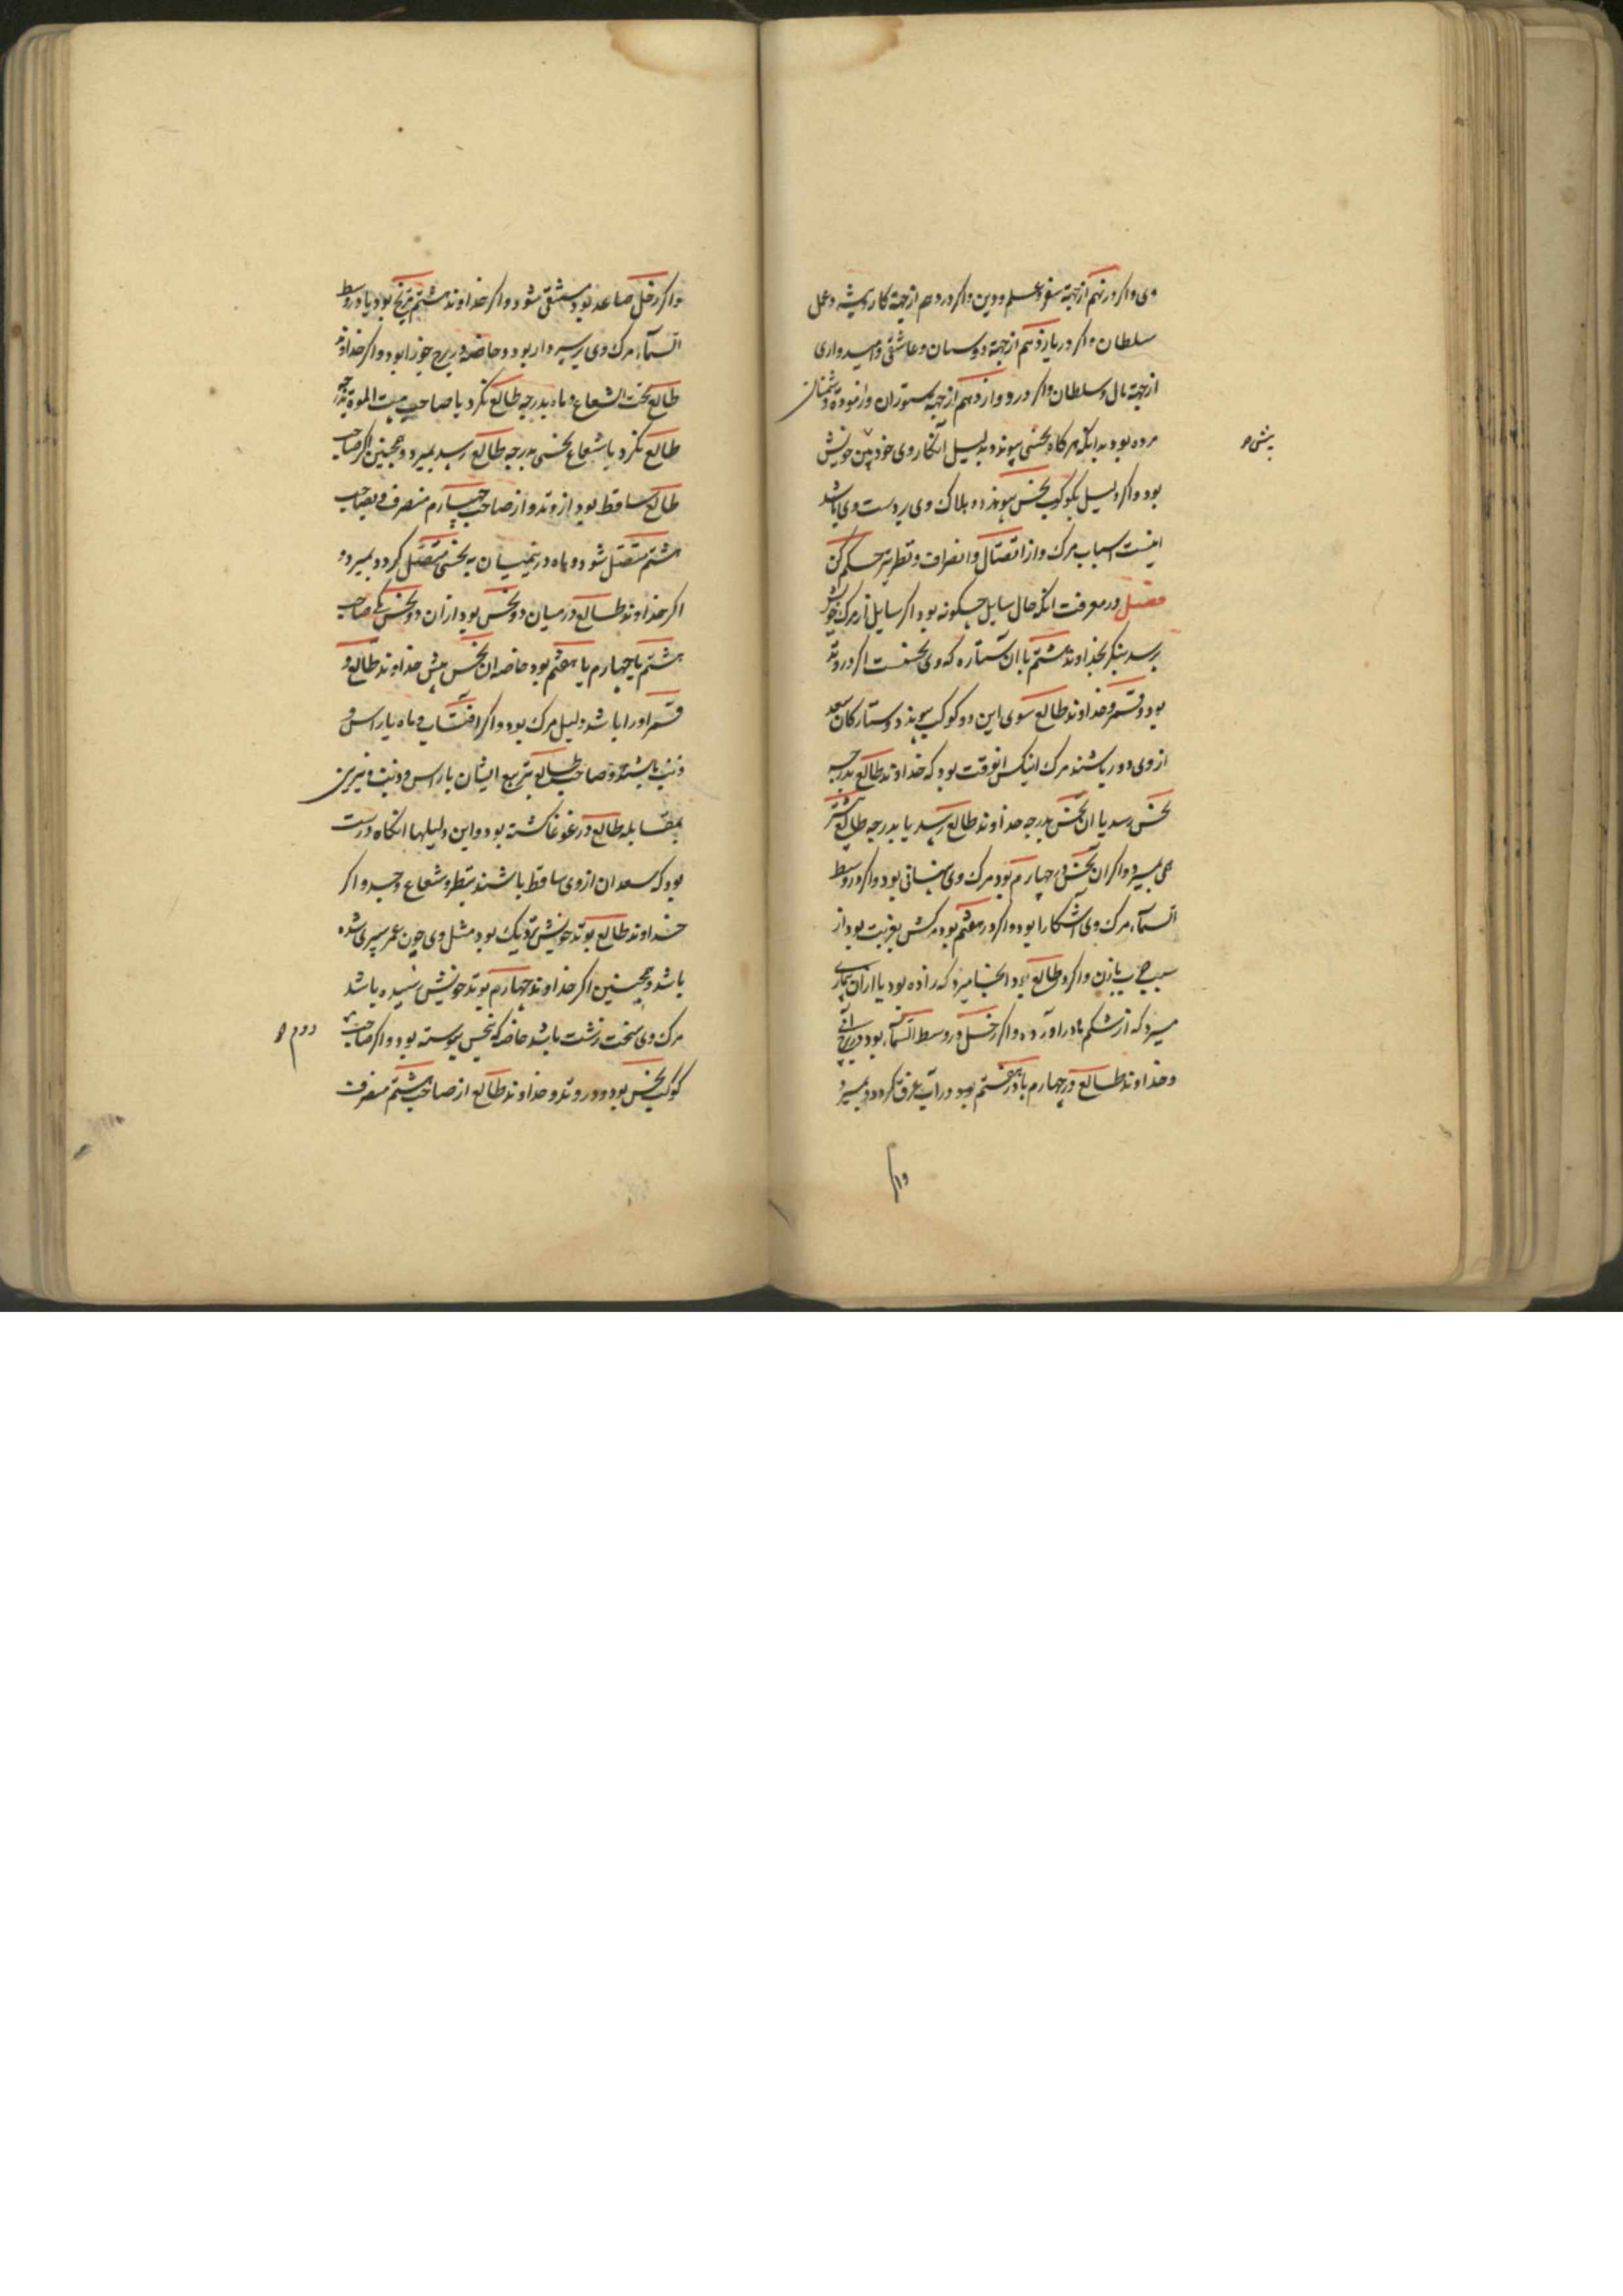 وی واکر در نهم از جهة سفر و علم و دین واکر در دهم از جهة کار و پیشه و عمل
سلطان واکر در یازدهم از جهة دوستان و عاشقی و امیدواری
از جهة مال و سلطان واکر در دوازدهم از جهة ستوران و از دشمنان
مرده بود بدانکه هرکاه بنحسی پیوندد بدلیل انکار وی خود پیش خویش
بود واکر دلیل بکوکب نحس پیوندد هلاک وی بر دست وی باشد
اینست اسباب مرک و از اتصال و انصراف و نظر نیز حکم کن
فصل در معرفت انکه حال سایل چکونه بود اکر سایل از مرک خویش
پرسد بنکر بخداوند هشتم یا ان ستاره که وی نحسست اکر در وتد
بود و قمر و خداوند طالع سوی این دو کوکب پیوندد و ستارکان سعد
از وی دور باشند مرک انیکس انوقت بود که خداوند طالع بدرجه
نحس رسد یا ان نحس بدرجه خداوند طالع رسد یا بدرجه طالع
می میرد واکر ان نحس در چهارم بود مرک وی پنهانی بود واکر در وسط
السمآء مرک وی اشکارا بود واکر در هفتم بود مرکش بغربت بود از
سبب یا زن واکر در طالع بود انجا میرد که زاده بود یا از ان بیماری
میرد که از شکم مادر اورده واکر زحل در وسط السمآء بود در برج آبی
و خداوند طالع در چهارم یا در هفتم بود در آب غرق کردد و بمیرد
واکر
بنحسی
واکر زحل صاعد بود مستسقی شود واکر خداوند هشتم مریخ بود یا در وسط
السمآء مرک وی بر سر دار بود و خاصه در برج جوزا بود واکر خداوند
طالع تحت الشعاع و ماه بدرجه طالع نکرد یا صاحب بیت الموت بدرجه
طالع نکرد یا شعاع نحسی بدرجه طالع رسد بمیرد و همچنین اکر صاحب
طالع ساقط بود از وتد و از صاحب چهارم منصرف و بصاحب
هشتم متصل شود و ماه در نیمسان به نحسی متصل کردد بمیرد و
اکر خداوند طالع در میان دو نحس بود از ان دو نحس یکی صاحب
هشتم یا چهارم یا هفتم بود خاصه ان نحس پیش خداوند طالع و
قمر او را باشد دلیل مرک بود واکر افتاب و ماه یا راس و
ذنب باشند و صاحب طالع بتربیع ایشان یا راس و ذنب و نیرین
بمقابله طالع در غوغا کشته بود و این دلیلها انکاه درست
بود که سعدان از وی ساقط باشند بنظر و شعاع و جسد واکر
خداوند طالع بوتد خویش نزدیک بود مثل وی چون عمر سپری شده
باشد و همچنین اکر خداوند چهارم بوتد خویش رسیده باشد
مرک وی سخت زشت باشد خاصه که بنحس پیوسته بود واکر صاحب
کوکب نحس بود و در وتد و خداوند طالع از صاحب هشتم منصرف
دوم